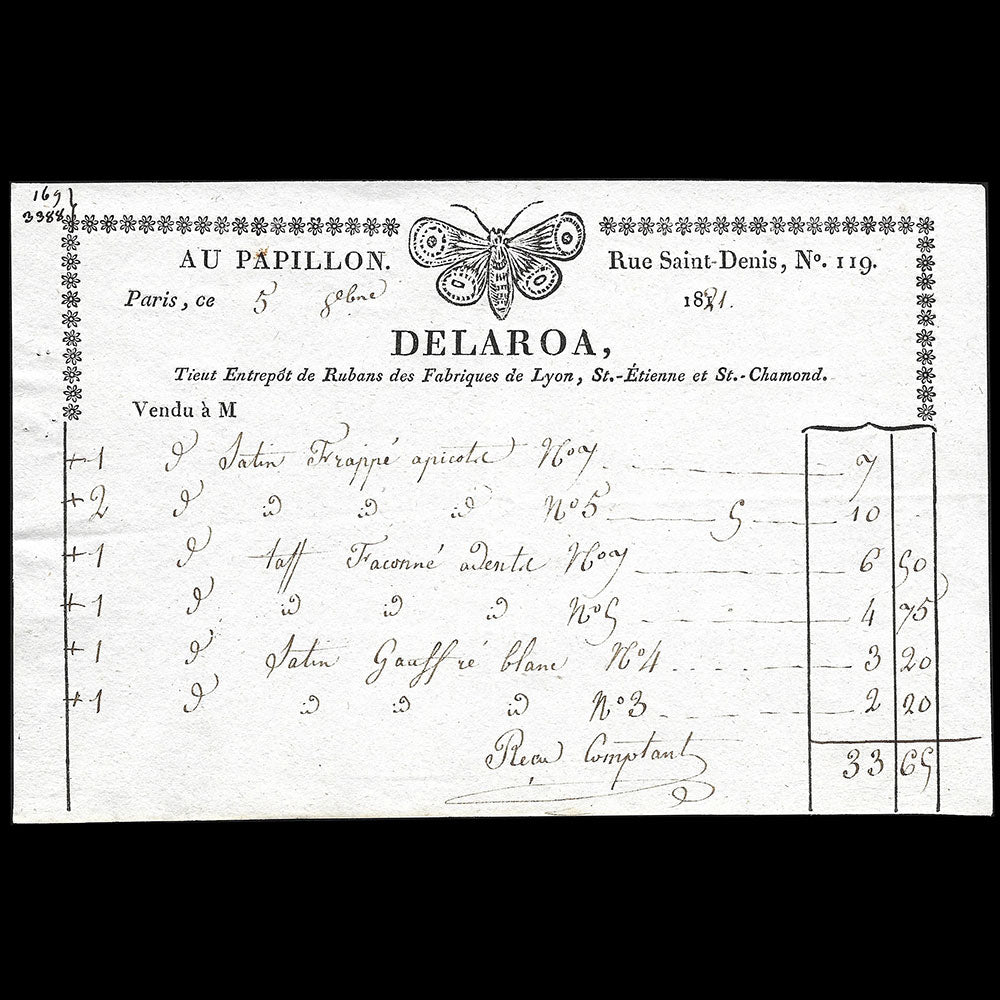 169
3388
AU PAPILLON. Rue Saint-Denis, Nº. 119.
Paris, ce 5 8bre 1821.
DELAROA,
Tieut Entrepôt de Rubans des Fabriques de Lyon, St.-Étienne et St.-Chamond.
Vendu à M
+ 1 d Satin Frappé apicots Nº 7 7
+ 2 d id id id Nº 5 5 10
+ 1 d taff Faconné adents Nº 7 6 50
+ 1 d id id id Nº 5 4 75
+ 1 d Satin Gauffré blanc Nº 4 3 20
+ 1 d id id id Nº 3 2 20
Reçu Comptant 33 65